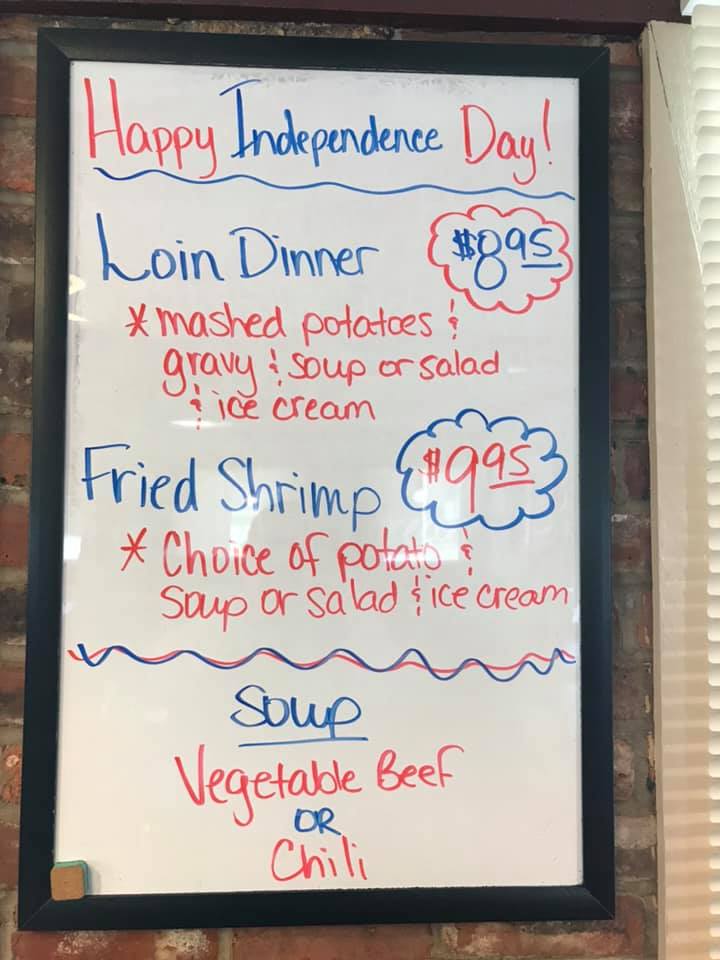 Happy Independence Day!
Loin Dinner $8.95
* mashed potatoes &
gravy & soup or salad
& ice cream
Fried Shrimp $9.95
* Choice of potato &
soup or salad & ice cream
Soup
Vegetable Beef
OR
Chili